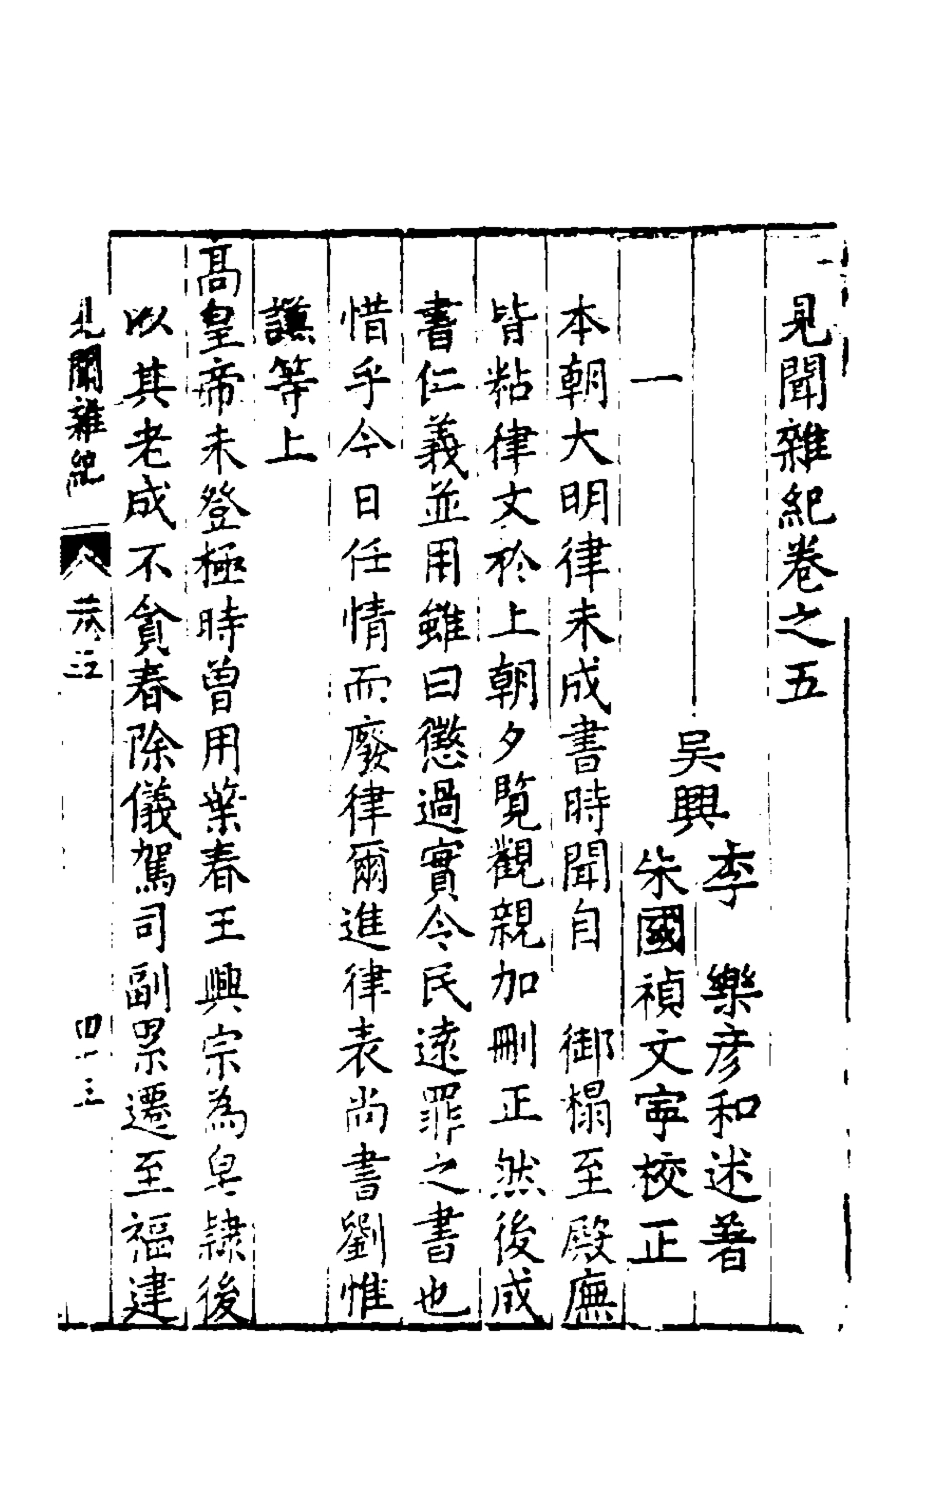 見聞雜紀卷之五
吳興
李　樂彥和述著
朱國禎文寧校正
一
本朝大明律未成書時聞自　御榻至殿廡
皆粘律文於上朝夕覽觀親加刪正然後成
書仁義並用雖曰懲過實令民遠罪之書也
惜乎今日任情而廢律爾進律表尚書劉惟
謙等上
高皇帝未登極時曾用葉春王興宗為皂隸後
以其老成不貪春除儀鸞司副累遷至福建
見聞雜紀
卷五
四十三